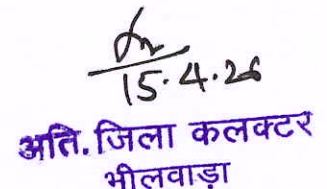 15.4.26
अति. जिला कलक्टर
भीलवाड़ा